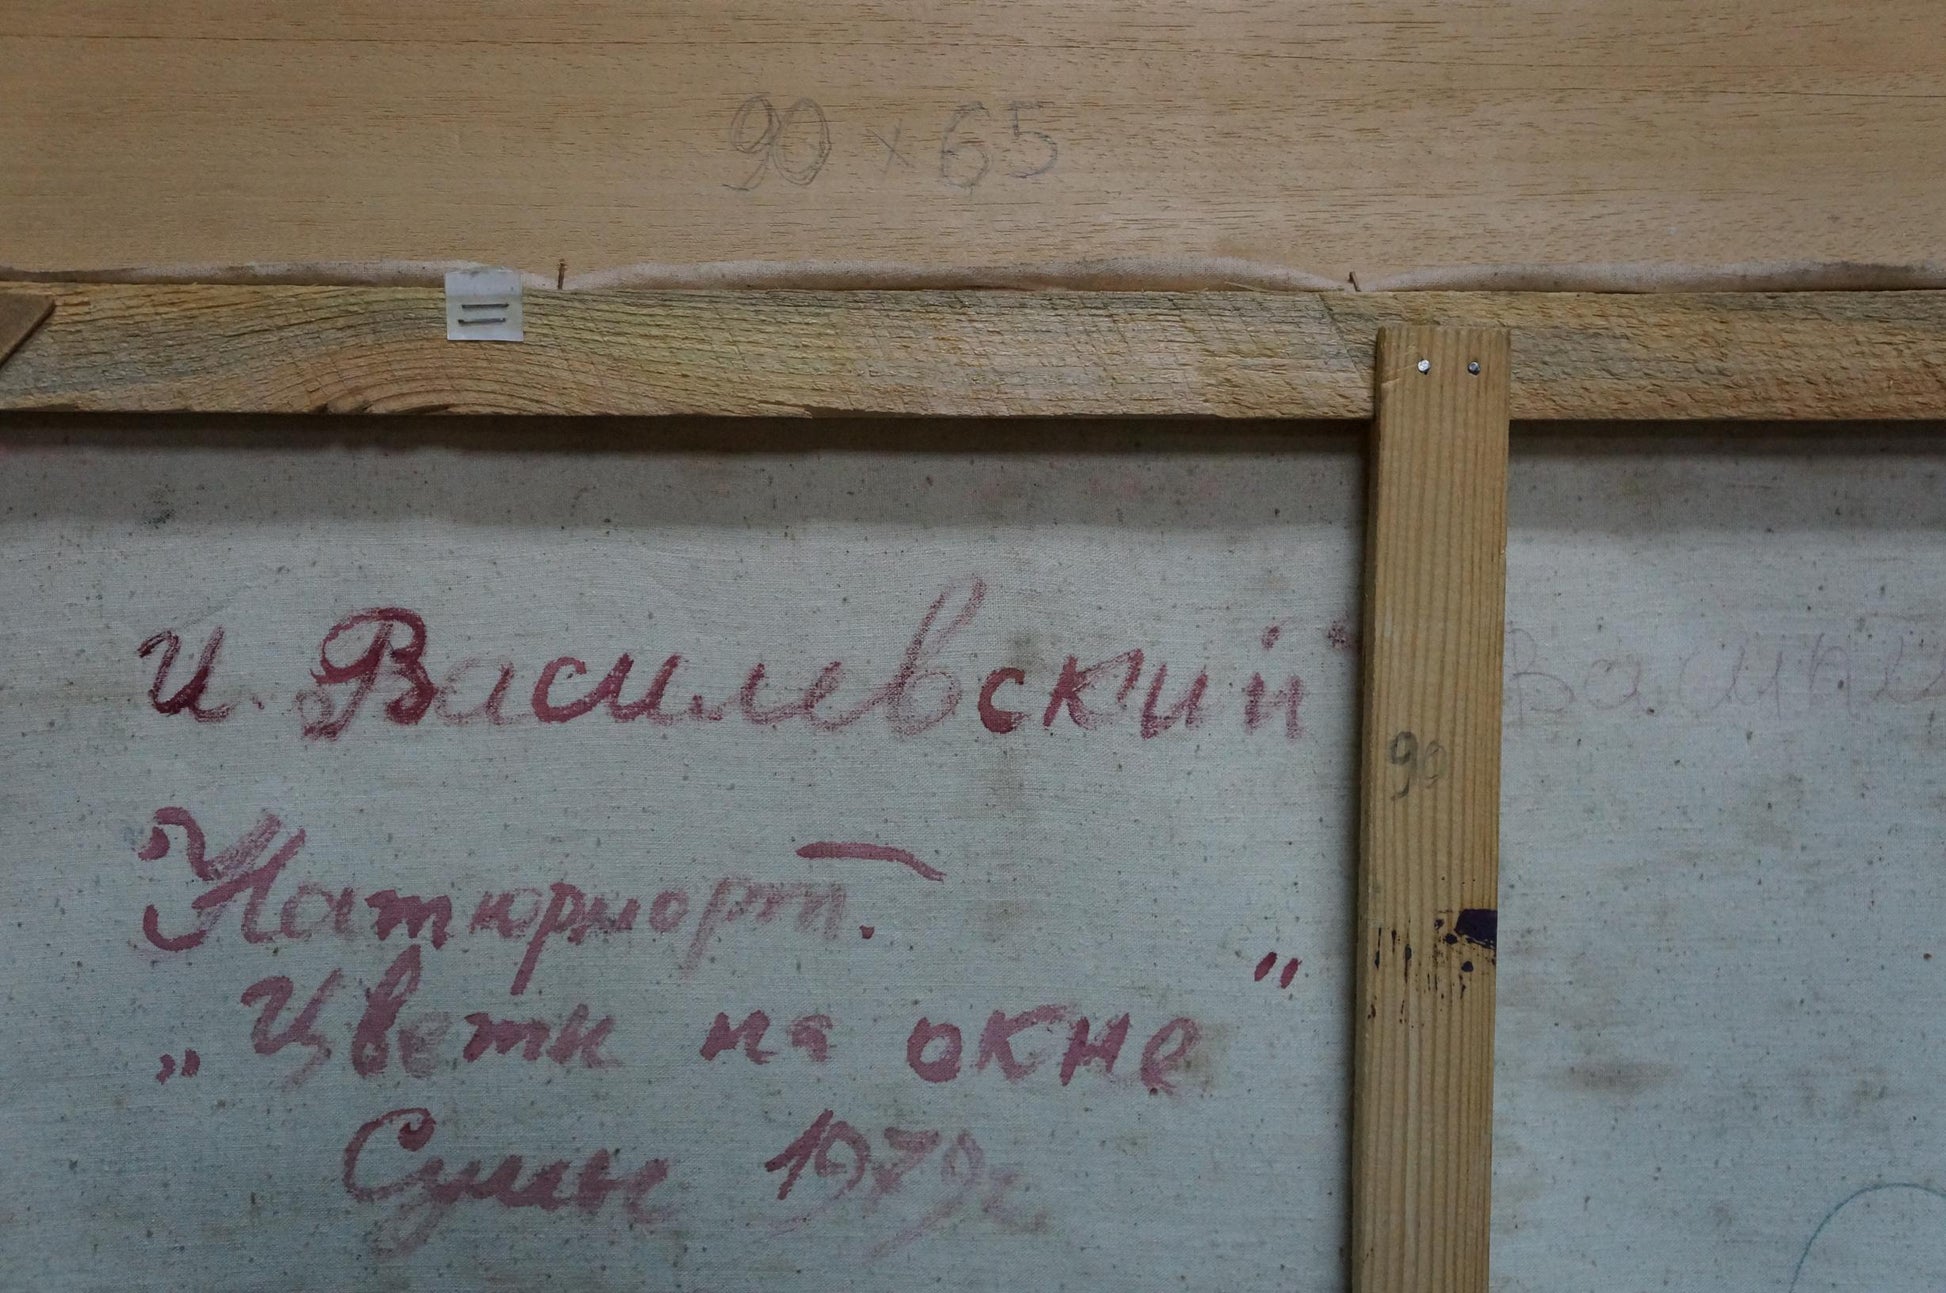 90 x 65
И. Василевский
90
Натюрморт.
„Цветы на окне"
Сумы 1979г